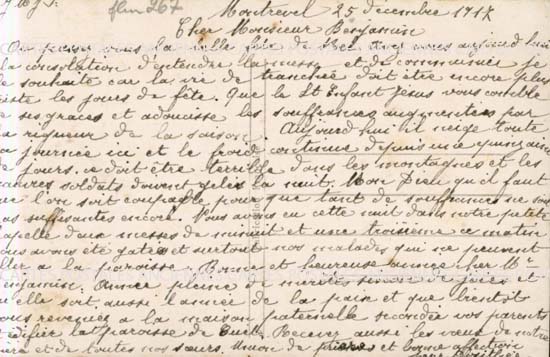 Montrevel 25 décembre 1917
Cher Monsieur Benjamin
Où passez vous la belle fête de Noel avez vous aujourd'hui
la consolation d'entendre la messe et de communier je
le souhaite car la vie de tranchée doit être encore plus
triste les jours de fête. Que le St Enfant Jésus vous comble
de ses graces et adoucisse les souffrances augmentées par
la rigueur de la saison. Aujourd'hui il neige toute
la journée ici et le froid continue depuis une quinzaine
de jours. ce doit être terrible dans les montagnes et les
pauvres soldats doivent geler la nuit. Mon Dieu qu'il faut
que l'on soit coupable pour que tant de souffrances ne soient
pas suffisantes encore. Nous avons eu cette nuit dans notre petite
chapelle deux messes de minuit et une troisième ce matin
nous avons été gatées et surtout nos malades qui ne peuvent
aller a la paroisse. Bonne et heureuse année cher Mr
Benjamin. Année pleine de mérites sinon de joies et
qu'elle soit aussi l'année de la paix et que bientôt
vous reveniez a la maison paternelle seconder vos parents
édifier la paroisse de Cuet. Recevez aussi les vœux de notre
mère et de toutes nos sœurs. Union de prière et bonne affection